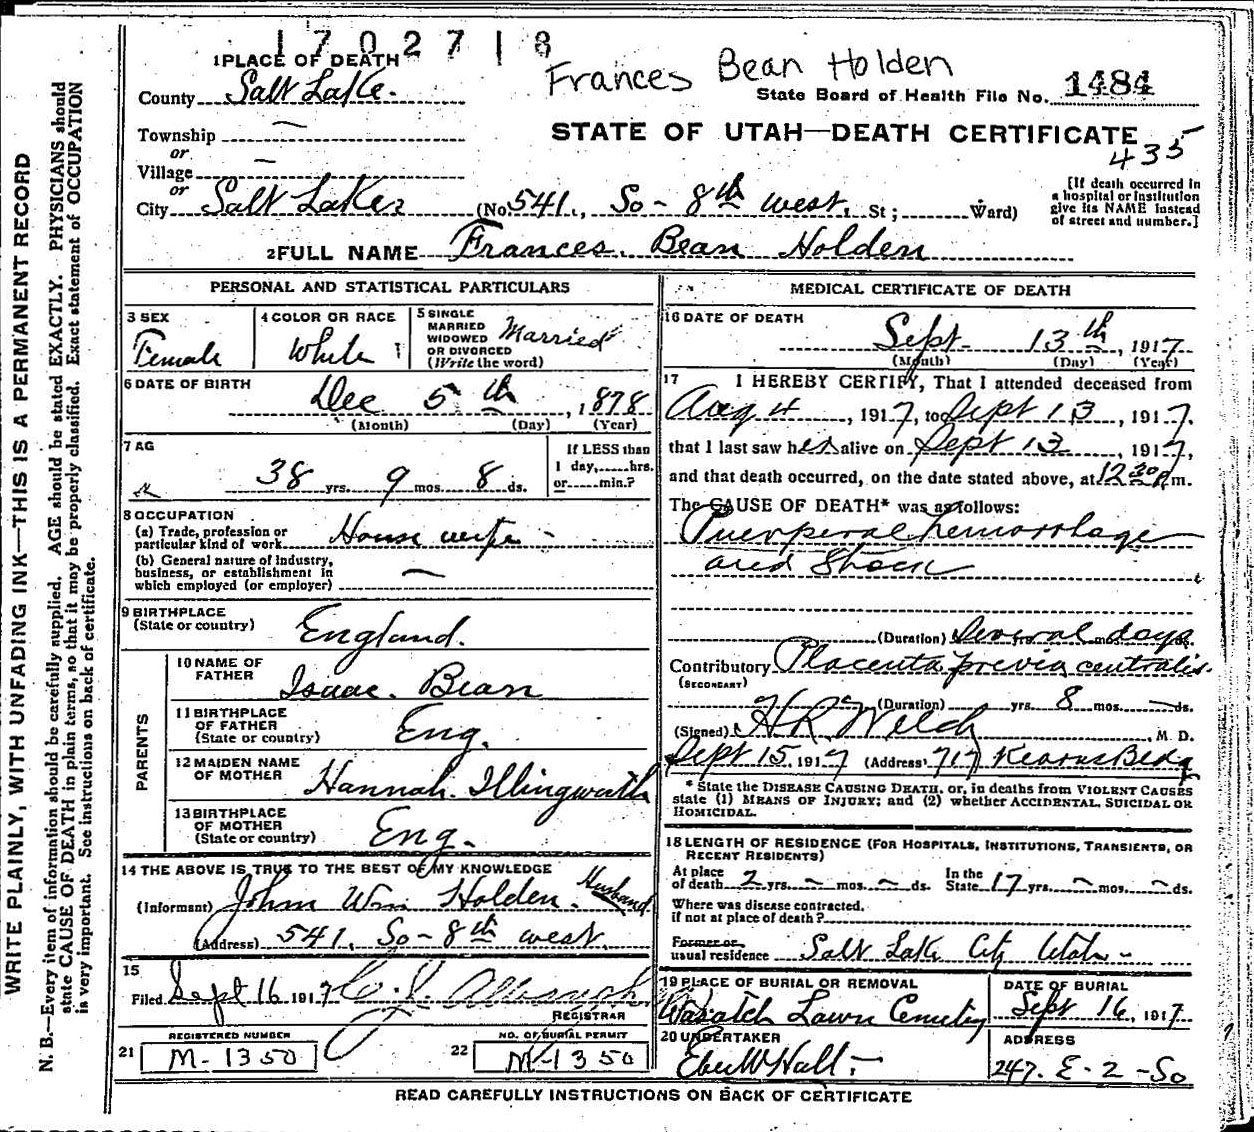 1702718
Frances Bean Holden
1 PLACE OF DEATH
County Salt Lake.
State Board of Health File No. 1484
Township —
or
STATE OF UTAH—DEATH CERTIFICATE
435
Village —
or
City Salt Lake (No. 541., So - 8th west. St; Ward)
[If death occurred in
a hospital or institution
give its NAME instead
of street and number.]
2 FULL NAME Frances. Bean Holden
PERSONAL AND STATISTICAL PARTICULARS
3 SEX
Female
4 COLOR OR RACE
White
5 SINGLE
MARRIED
WIDOWED
OR DIVORCED
(Write the word)
Married
6 DATE OF BIRTH
Dec 5th, 1878
(Month) (Day) (Year)
7 AG
38 yrs. 9 mos. 8 ds.
If LESS than
1 day, hrs.
or min.?
8 OCCUPATION
(a) Trade, profession or
particular kind of work House wife -
(b) General nature of industry,
business, or establishment in
which employed (or employer) —
9 BIRTHPLACE
(State or country) England.
PARENTS
10 NAME OF
FATHER Isaac. Bean
11 BIRTHPLACE
OF FATHER
(State or country) Eng.
12 MAIDEN NAME
OF MOTHER Hannah. Illingwath
13 BIRTHPLACE
OF MOTHER
(State or country) Eng.
14 THE ABOVE IS TRUE TO THE BEST OF MY KNOWLEDGE
(Informant) John Wm Holden. Husband
(Address) 541. So - 8th west.
15
Filed Sept 16 1917
REGISTRAR
REGISTERED NUMBER
21 M-1350
NO. OF BURIAL PERMIT
22 M-1350
MEDICAL CERTIFICATE OF DEATH
16 DATE OF DEATH
Sept- 13th, 1917
(Month) (Day) (Year)
17 I HEREBY CERTIFY, That I attended deceased from
Aug 4, 1917, to Sept 13, 1917.
that I last saw her alive on Sept 13, 1917,
and that death occurred, on the date stated above, at 12 30 p.m.
The CAUSE OF DEATH* was as follows:
Puerperal hemorrhage
and Shock
(Duration) Several days
Contributory Placenta previa centralis.
(SECONDARY)
(Duration) yrs. 8 mos. — ds.
(Signed) H R Welch, M. D.
Sept 15. 1917 (Address) 717 Kearns Bldg
* State the DISEASE CAUSING DEATH, or, in deaths from VIOLENT CAUSES
state (1) MEANS OF INJURY; and (2) whether ACCIDENTAL, SUICIDAL OR
HOMICIDAL.
18 LENGTH OF RESIDENCE (FOR HOSPITALS, INSTITUTIONS, TRANSIENTS, OR
RECENT RESIDENTS)
At place
of death 2 yrs. - mos. - ds. In the
State 17 yrs. - mos. - ds.
Where was disease contracted.
if not at place of death?
Former or
usual residence Salt Lake City Utah -
19 PLACE OF BURIAL OR REMOVAL
Wasatch Lawn Cemetery
DATE OF BURIAL
Sept 16, 1917
20 UNDERTAKER
Eber W Hall. -
ADDRESS
247. E - 2 - So
READ CAREFULLY INSTRUCTIONS ON BACK OF CERTIFICATE
WRITE PLAINLY, WITH UNFADING INK—THIS IS A PERMANENT RECORD
N. B.—Every item of information should be carefully supplied. AGE should be stated EXACTLY. PHYSICIANS should
state CAUSE OF DEATH in plain terms, so that it may be properly classified. Exact statement of OCCUPATION
is very important. See instructions on back of certificate.